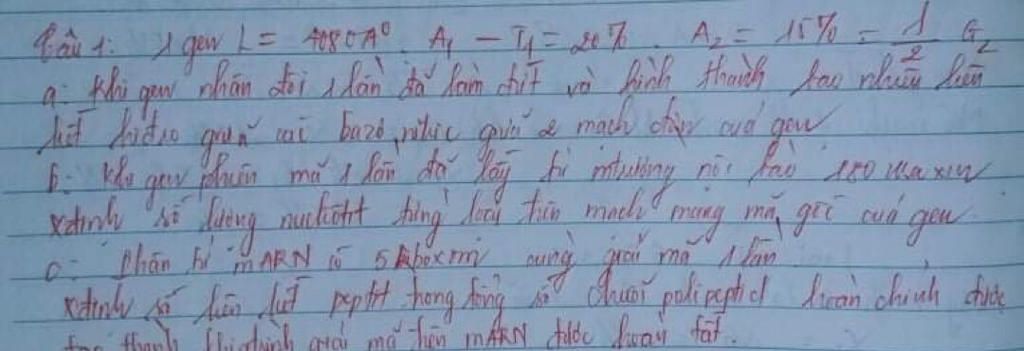 Câu 1: 1 gen L = 4080A⁰. A₁ - T₁ = 20%. A₂ = 15% = 1/2 G₂
a: Khi gen nhân đôi 1 lần đã làm đứt và hình thành bao nhiêu liên
kết hiđro giữa các bazơ nitric giữa 2 mạch đơn của gen
b: Khi gen phiên mã 1 lần đã lấy từ mtrường nội bào 180 Uraxin
xđịnh số lượng nucleotit từng loại trên mạch mang mã gốc của gen
c: Phân tử mARN có 5 Riboxom cùng giải mã 1 lần
xđịnh số liên kết peptit trong tổng số chuỗi polipeptid hoàn chỉnh được
tạo thành khi giải mã trên mARN được hoàn tất.